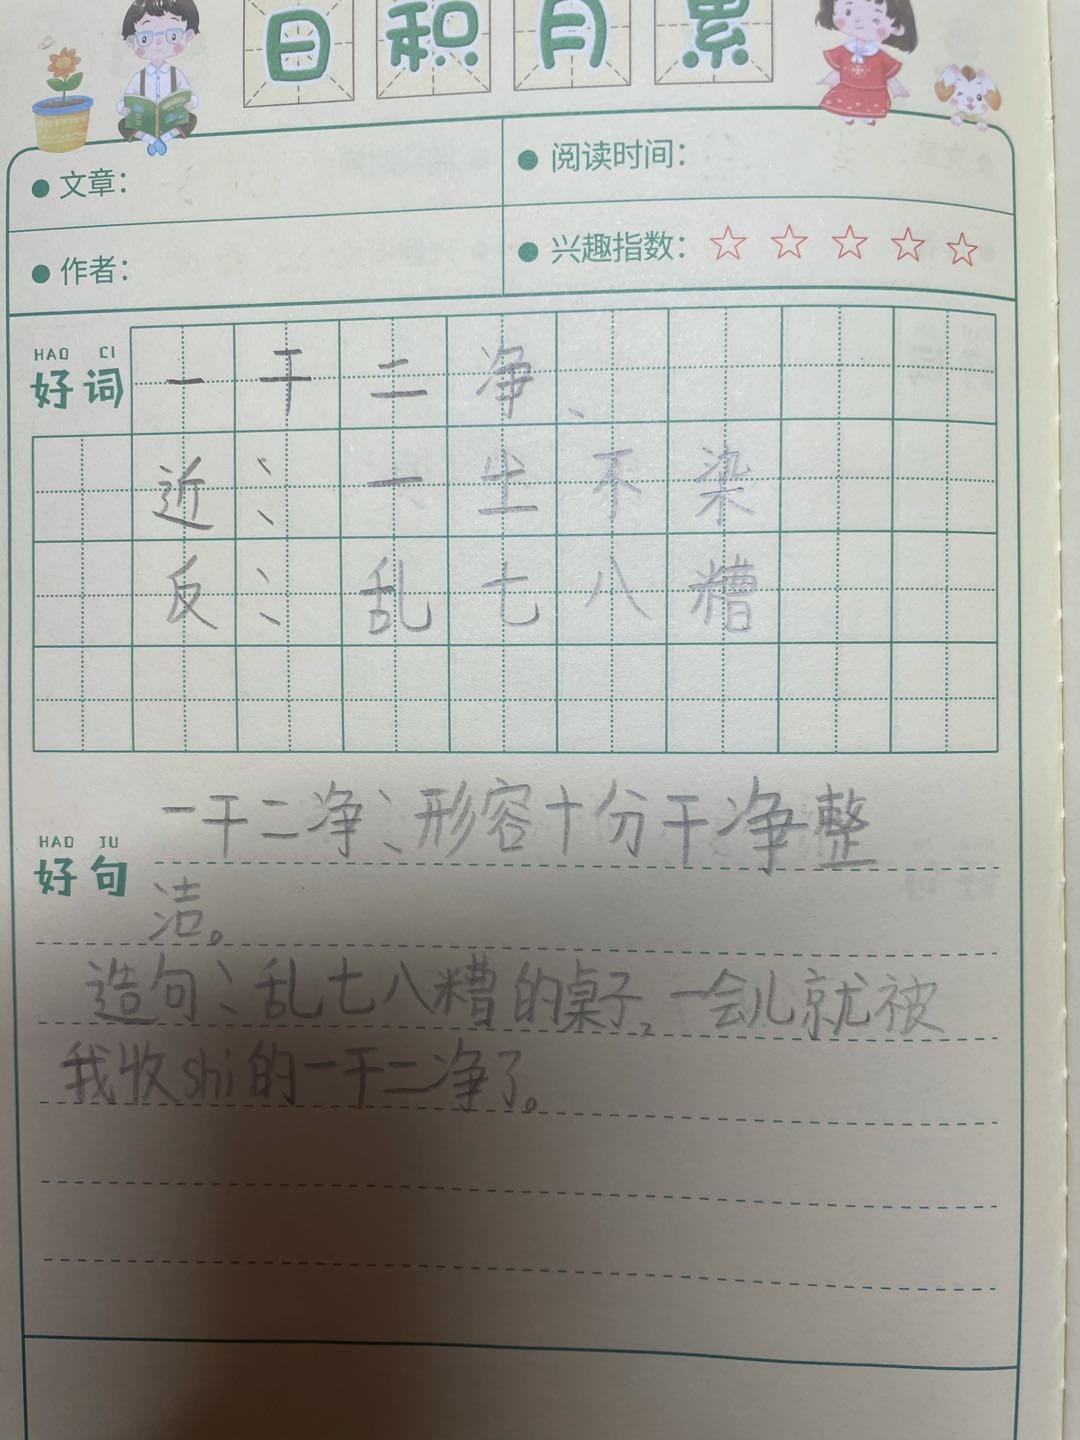 日积月累
文章：
阅读时间：
作者：
兴趣指数：☆☆☆☆☆
HAO CI
好词
一干二净、
近：一尘不染
反：乱七八糟
HAO JU
好句
一干二净：形容十分干净整
洁。
造句：乱七八糟的桌子，一会儿就被
我收shi的一干二净了。